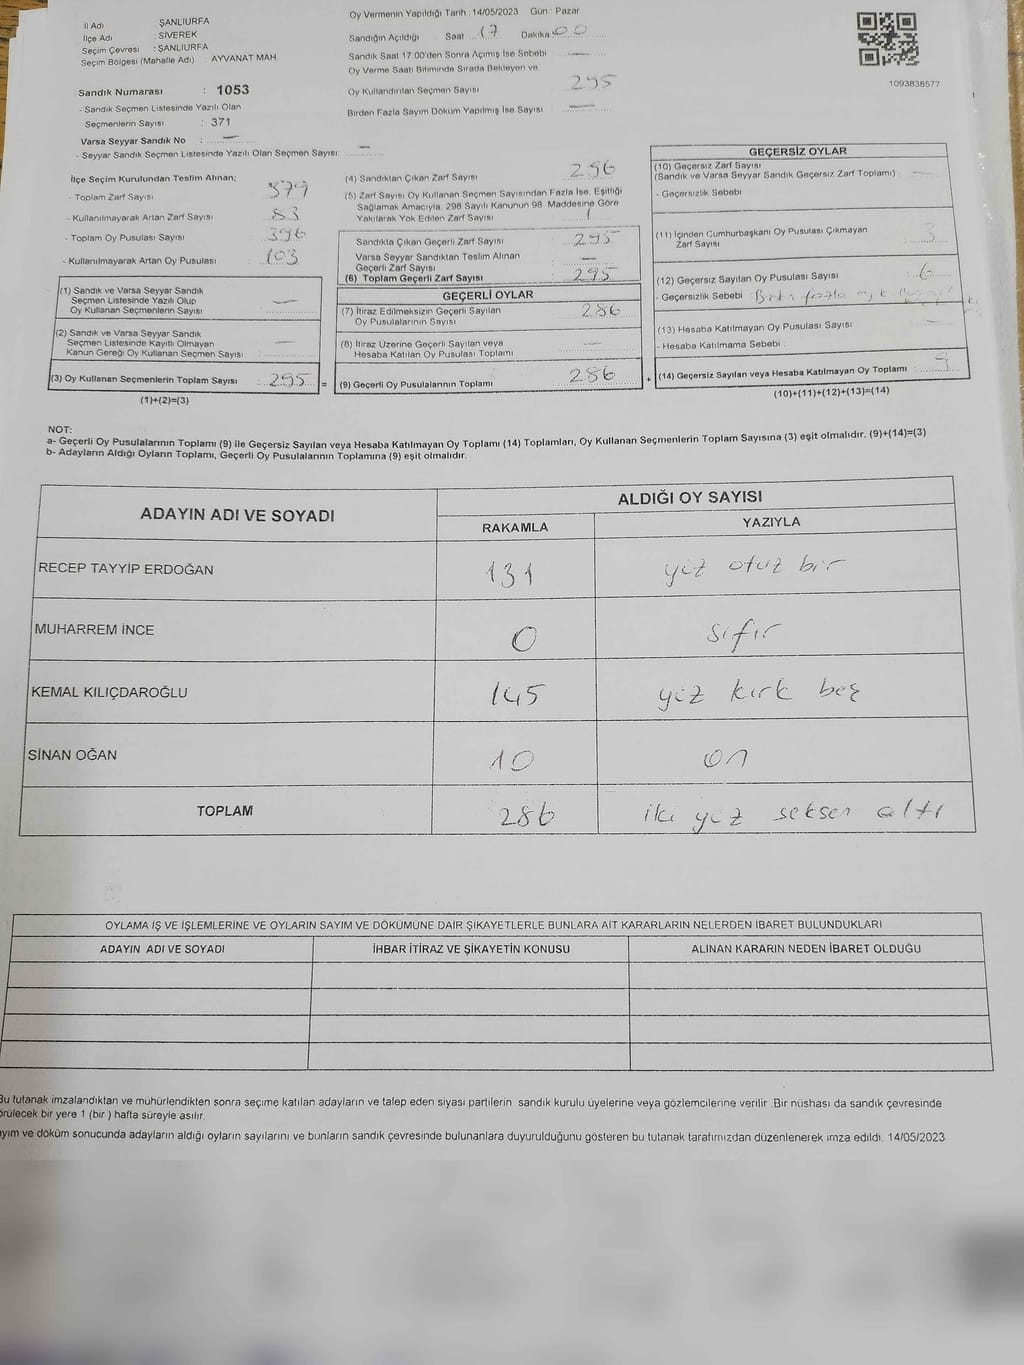 İl Adı : ŞANLIURFA
İlçe Adı : SİVEREK
Seçim Çevresi : ŞANLIURFA
Seçim Bölgesi (Mahalle Adı) : AYVANAT MAH.
Sandık Numarası : 1053
- Sandık Seçmen Listesinde Yazılı Olan
Seçmenlerin Sayısı : 371
Varsa Seyyar Sandık No : —
- Seyyar Sandık Seçmen Listesinde Yazılı Olan Seçmen Sayısı: —
Oy Vermenin Yapıldığı Tarih : 14/05/2023 Gün : Pazar
Sandığın Açıldığı Saat 17 Dakika 00
Sandık Saat 17:00'den Sonra Açımış İse Sebebi —
Oy Verme Saati Bitiminde Sırada Bekleyen ve
Oy Kullandırılan Seçmen Sayısı 295
Birden Fazla Sayım Döküm Yapılmış İse Sayısı —
1093838577
İlçe Seçim Kurulundan Teslim Alınan;
- Toplam Zarf Sayısı 379
- Kullanılmayarak Artan Zarf Sayısı 83
- Toplam Oy Pusulası Sayısı 396
- Kullanılmayarak Artan Oy Pusulası 103
(1) Sandık ve Varsa Seyyar Sandık
Seçmen Listesinde Yazılı Olup
Oy Kullanan Seçmenlerin Sayısı —
(2) Sandık ve Varsa Seyyar Sandık
Seçmen Listesinde Kayıtlı Olmayan
Kanun Gereği Oy Kullanan Seçmen Sayısı —
(3) Oy Kullanan Seçmenlerin Toplam Sayısı : 295 =
(1)+(2)=(3)
(4) Sandıktan Çıkan Zarf Sayısı 296
(5) Zarf Sayısı Oy Kullanan Seçmen Sayısından Fazla İse, Eşitliği
Sağlamak Amacıyla, 298 Sayılı Kanunun 98. Maddesine Göre
Yakılarak Yok Edilen Zarf Sayısı 1
Sandıkta Çıkan Geçerli Zarf Sayısı 295
Varsa Seyyar Sandıktan Teslim Alınan
Geçerli Zarf Sayısı —
(6) Toplam Geçerli Zarf Sayısı 295
GEÇERLİ OYLAR
(7) İtiraz Edilmeksizin Geçerli Sayılan
Oy Pusulalarının Sayısı 286
(8) İtiraz Üzerine Geçerli Sayılan veya
Hesaba Katılan Oy Pusulası Toplamı —
(9) Geçerli Oy Pusulalarının Toplamı 286 +
GEÇERSİZ OYLAR
(10) Geçersiz Zarf Sayısı
(Sandık ve Varsa Seyyar Sandık Geçersiz Zarf Toplamı) —
- Geçersizlik Sebebi
(11) İçinden Cumhurbaşkanı Oy Pusulası Çıkmayan
Zarf Sayısı 3
(12) Geçersiz Sayılan Oy Pusulası Sayısı 6
- Geçersizlik Sebebi : fazla
(13) Hesaba Katılmayan Oy Pusulası Sayısı —
- Hesaba Katılmama Sebebi :
(14) Geçersiz Sayılan veya Hesaba Katılmayan Oy Toplamı 9
(10)+(11)+(12)+(13)=(14)
NOT:
a- Geçerli Oy Pusulalarının Toplamı (9) ile Geçersiz Sayılan veya Hesaba Katılmayan Oy Toplamı (14) Toplamları, Oy Kullanan Seçmenlerin Toplam Sayısına (3) eşit olmalıdır. (9)+(14)=(3)
b- Adayların Aldığı Oyların Toplamı, Geçerli Oy Pusulalarının Toplamına (9) eşit olmalıdır.
ADAYIN ADI VE SOYADI
ALDIĞI OY SAYISI
RAKAMLA YAZIYLA
RECEP TAYYİP ERDOĞAN 131 yüz otuz bir
MUHARREM İNCE 0 sıfır
KEMAL KILIÇDAROĞLU 145 yüz kırk beş
SİNAN OĞAN 10 on
TOPLAM 286 iki yüz seksen altı
OYLAMA İŞ VE İŞLEMLERİNE VE OYLARIN SAYIM VE DÖKÜMÜNE DAİR ŞİKAYETLERLE BUNLARA AİT KARARLARIN NELERDEN İBARET BULUNDUKLARI
ADAYIN ADI VE SOYADI İHBAR İTİRAZ VE ŞİKAYETİN KONUSU ALINAN KARARIN NEDEN İBARET OLDUĞU
Bu tutanak imzalandıktan ve mühürlendikten sonra seçime katılan adayların ve talep eden siyasi partilerin sandık kurulu üyelerine veya gözlemcilerine verilir. Bir nüshası da sandık çevresinde
örülecek bir yere 1 (bir ) hafta süreyle asılır.
ayım ve döküm sonucunda adayların aldığı oyların sayılarını ve bunların sandık çevresinde bulunanlara duyurulduğunu gösteren bu tutanak tarafımızdan düzenlenerek imza edildi. 14/05/2023